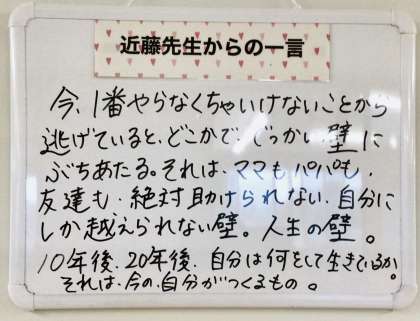 近藤先生からの一言
今、1番やらなくちゃいけないことから
逃げていると、どこかで、でっかい壁に
ぶちあたる。それは、ママもパパも、
友達も、絶対助けられない、自分に
しか越えられない壁。人生の壁。
10年後、20年後、自分は何をして生きているか。
それは、今の、自分がつくるもの。